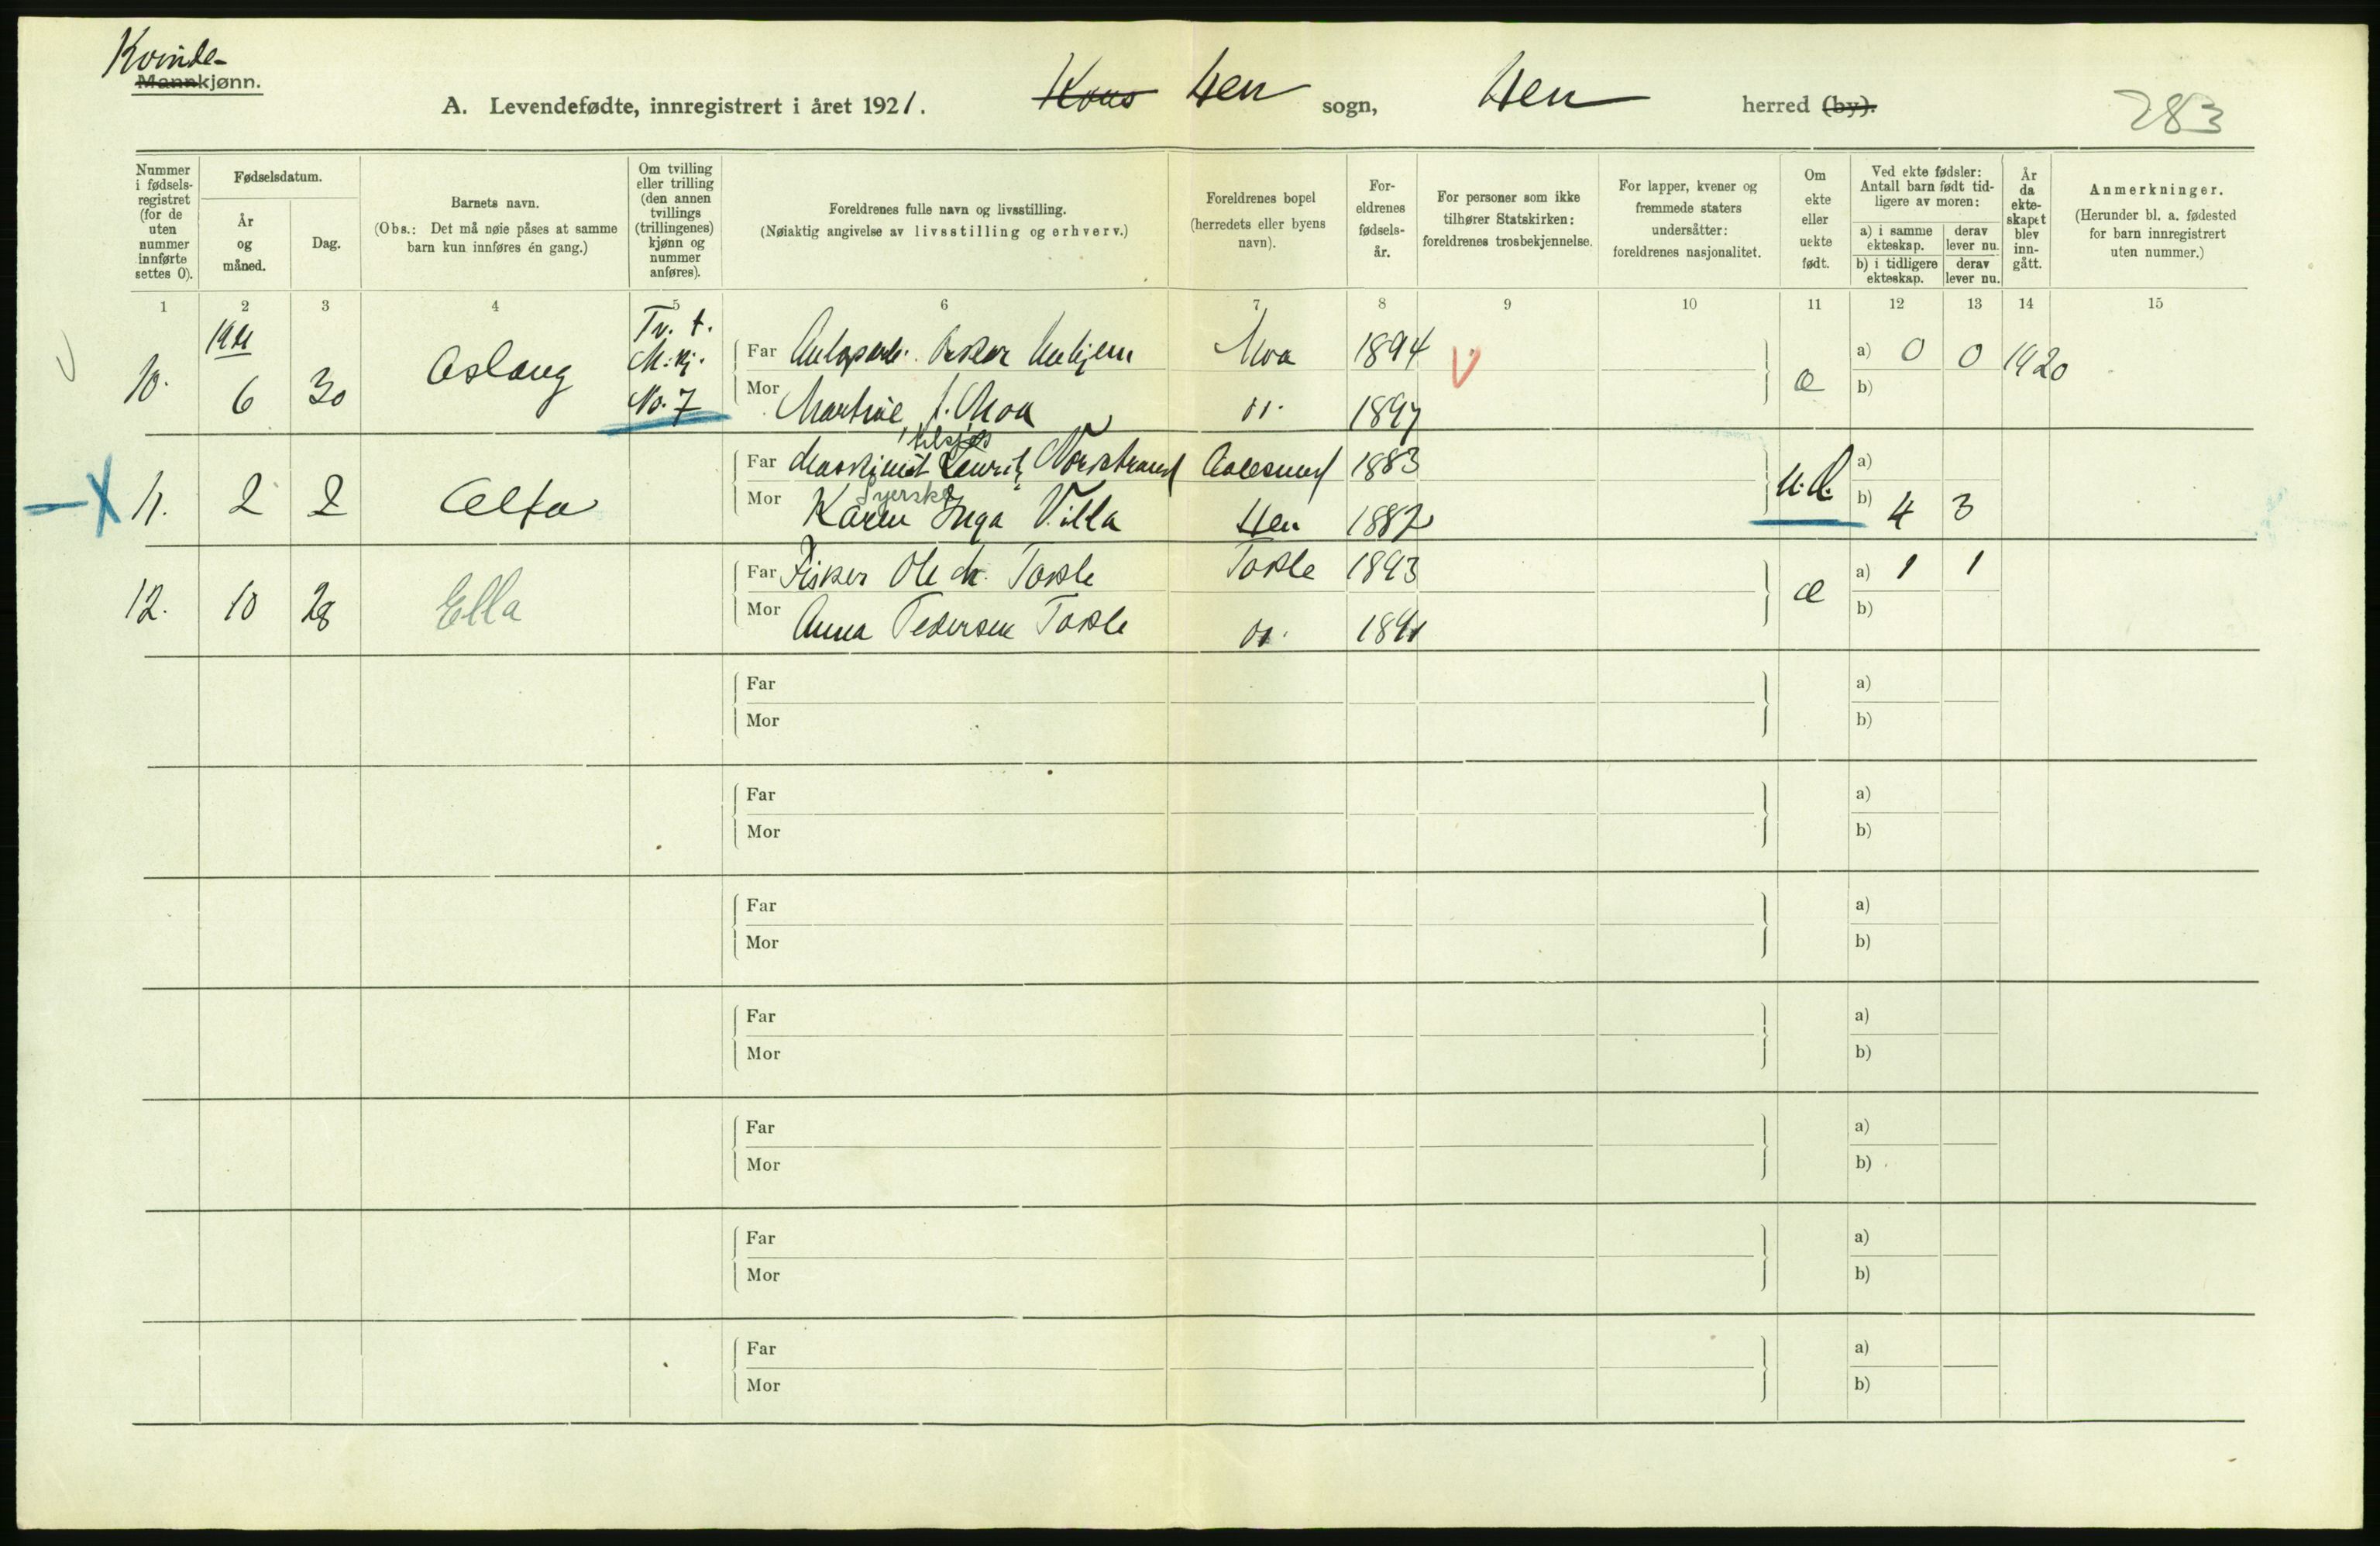 Kvinde-
Mannkjønn.
A. Levendefødte, innregistrert i året 1921. Hen sogn, Hen herred (by).
283
Nummer i fødsels-registret (for de uten nummer innførte settes 0).
Fødselsdatum.
År og måned.
Dag.
Barnets navn.
(Obs.: Det må nøie påses at samme barn kun innføres én gang.)
Om tvilling eller trilling (den annen tvillings (trillingenes) kjønn og nummer anføres).
Foreldrenes fulle navn og livsstilling.
(Nøiaktig angivelse av livsstilling og erhverv.)
Foreldrenes bopel (herredets eller byens navn).
For-eldrenes fødsels-år.
For personer som ikke tilhører Statskirken: foreldrenes trosbekjennelse.
For lapper, kvener og fremmede staters undersåtter: foreldrenes nasjonalitet.
Om ekte eller uekte født.
Ved ekte fødsler: Antall barn født tid-ligere av moren:
a) i samme ekteskap.
derav lever nu.
b) i tidligere ekteskap.
derav lever nu.
År da ekte-skapet blev inn-gått.
Anmerkninger.
(Herunder bl. a. fødested for barn innregistrert uten nummer.)
1 2 3 4 5 6 7 8 9 10 11 12 13 14 15
1921
Tv. t.
M.kj.
No. 7
10. 6 30 Aslaug
Far Oskar Moa 1894 V
Mor f. Moa 1897
æ
a) 0 0 1920
b)
X 11. 2 2 Alfa
Far Maskinist Lauritz Nordstrand Aalesund 1883
Syerske
Mor Karen Inga Villa Hen 1887
a)
b) 4 3
12. 10 28 Ella
Far Fisker Ole M. Torkle Torkle 1893
Mor Anna Pedersen Torkle 1891
æ
a) 1 1
b)
Far a)
Mor b)
Far a)
Mor b)
Far a)
Mor b)
Far a)
Mor b)
Far a)
Mor b)
Far a)
Mor b)
Far a)
Mor b)